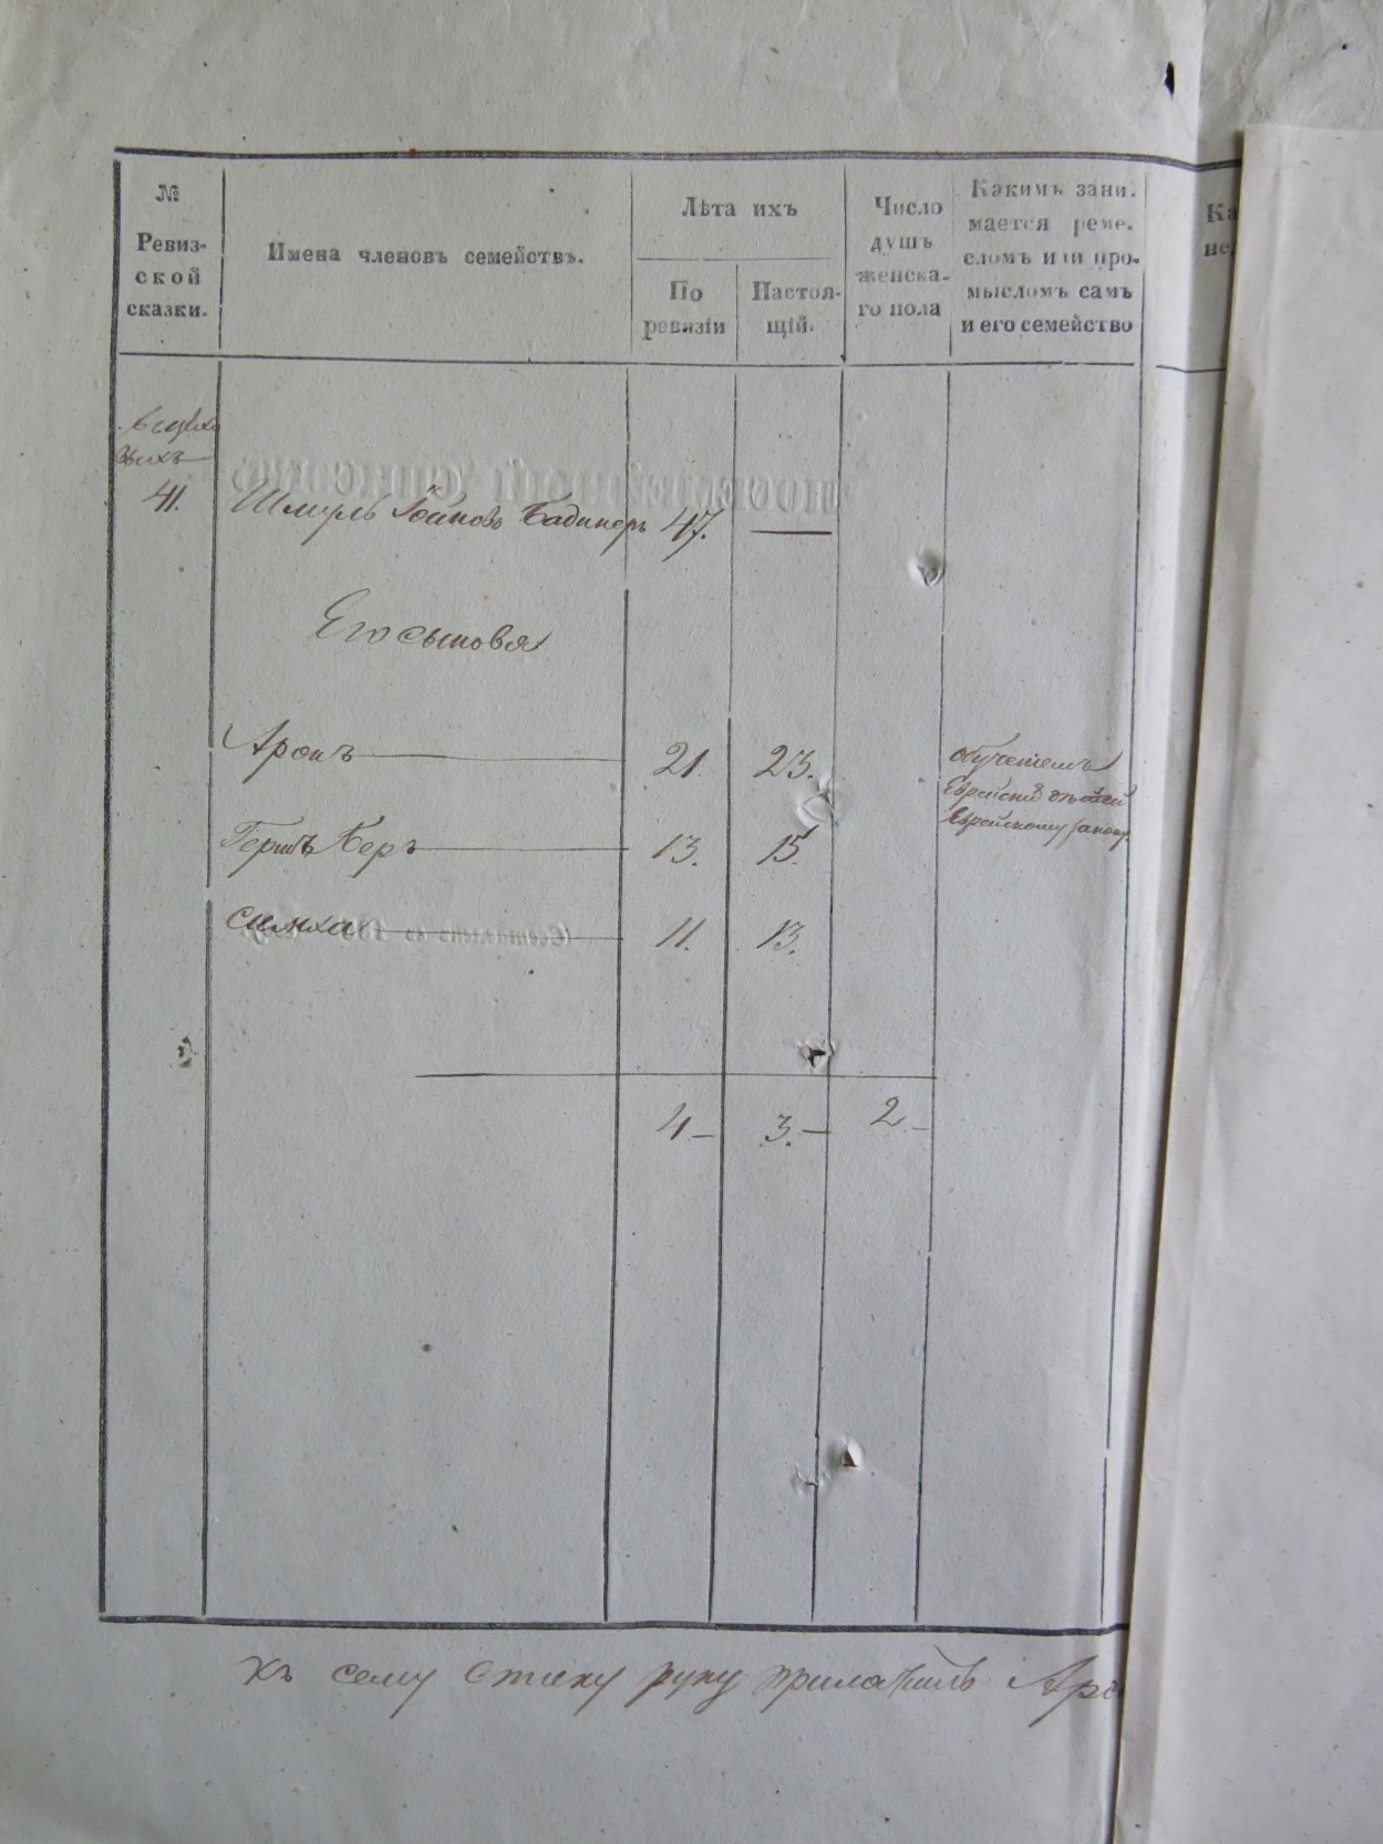 №
Ревиз-
ской
сказки.
Имена членовъ семействъ.
Лѣта ихъ
По
ревизіи
Настоя-
щій.
Число
душъ
женска-
го пола
Какимъ зани-
мается реме-
сломъ или про-
мысломъ самъ
и его семейство
Ка
не
выхъ
41. Шмуль 47. —
Его сыновья
Аронъ 21. 23.
обученіемъ
Еврейскому закону
Гершъ Беръ 13. 15.
Симха 11. 13.
4- 3.- 2.-
къ сему списку руку приложилъ Аро